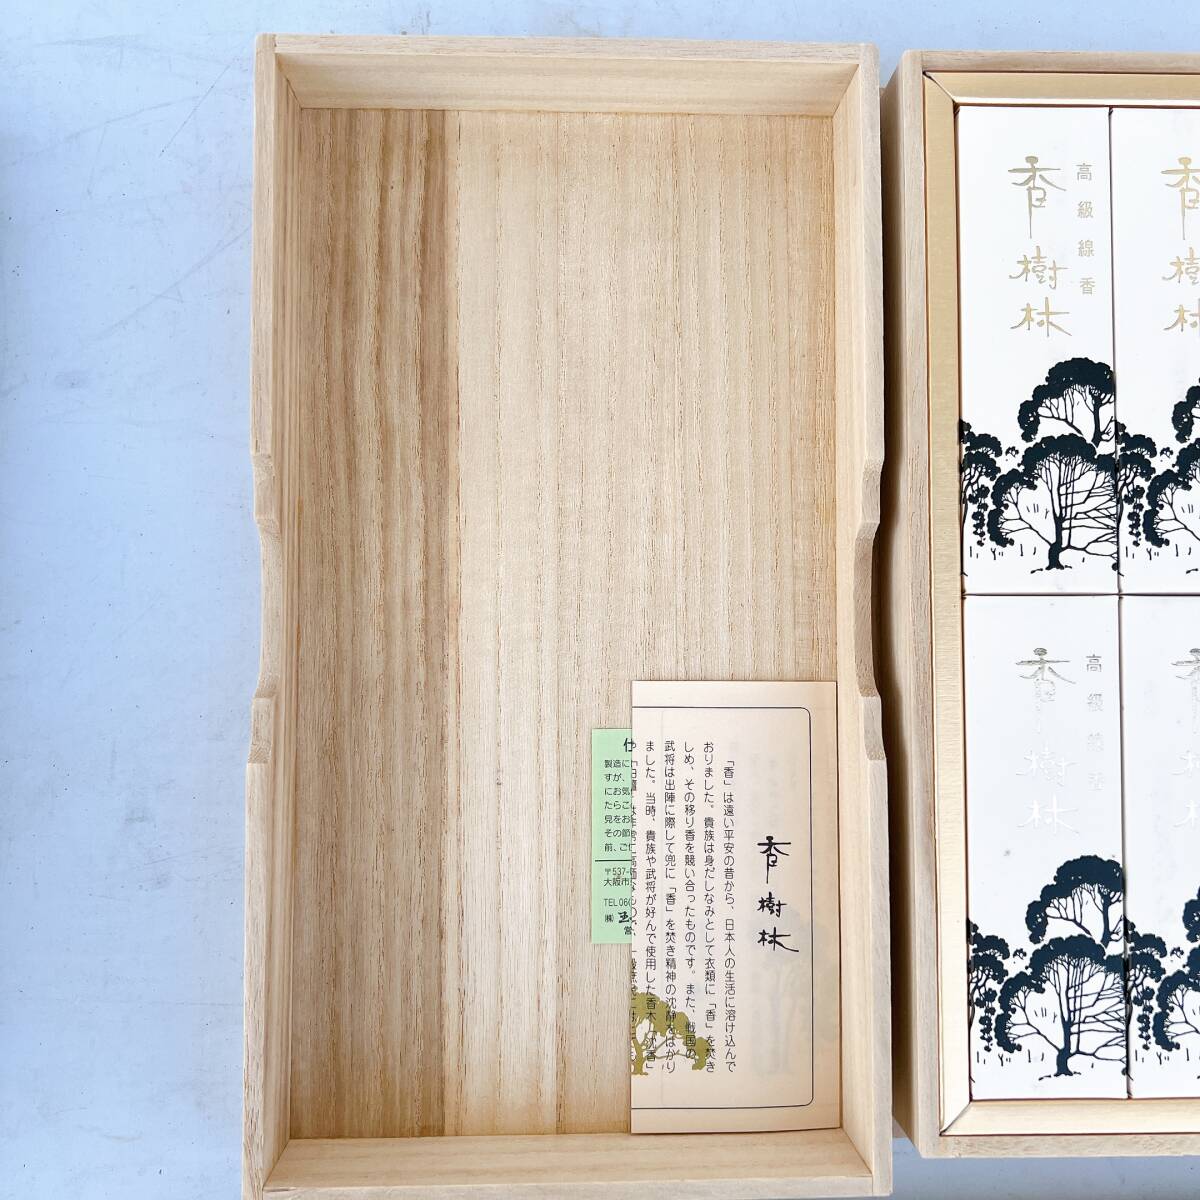 香樹林
高級線香
香樹林
香樹林
高級線香
香樹林
香樹林
「香」は遠い平安の昔から、日本人の生活に溶け込んで
おりました。貴族は身だしなみとして衣類に「香」を焚き
しめ、その移り香を競い合ったものです。また、戦国の
武将は出陣に際して兜に「香」を焚き精神の沈静をはかり
ました。当時、貴族や武将が好んで使用した香木「沈香」
製造に
すが、
にお気
たらこ
見をお
その節
前、ご
〒537-
大阪市
TEL06
㈱ 玉
営